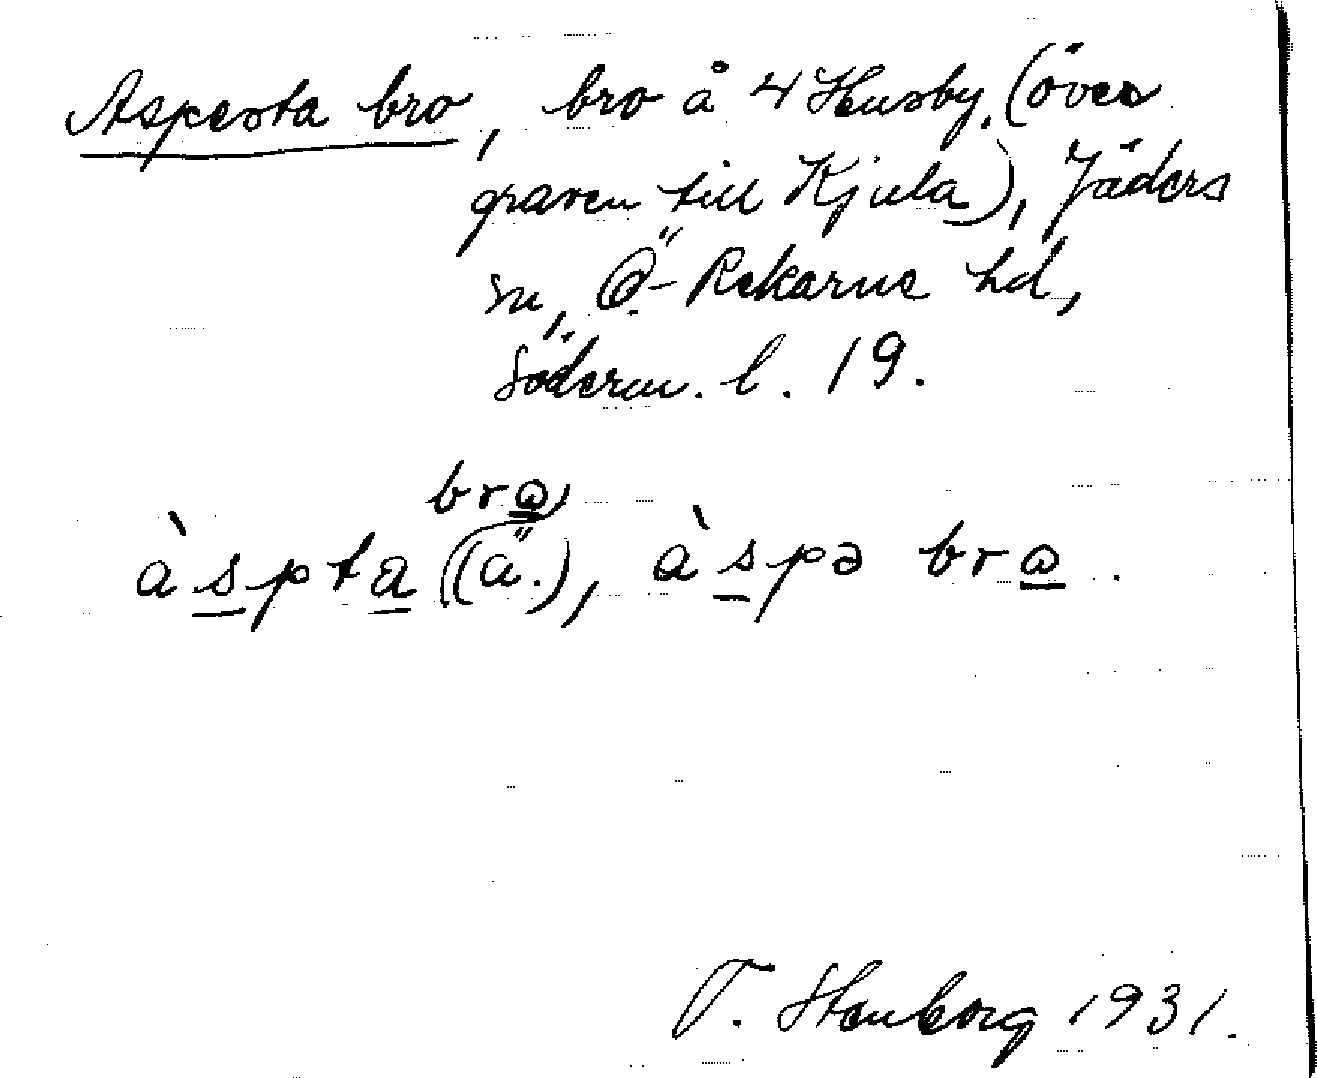 Aspesta bro, bro å 4 Husby, (över
graven till Kjula), Jäders
sn, Ö-Rekarne hd,
Söderm. l. 19.
bro
àspta (ä.), àspə bro.
T. Stenborg 1931.